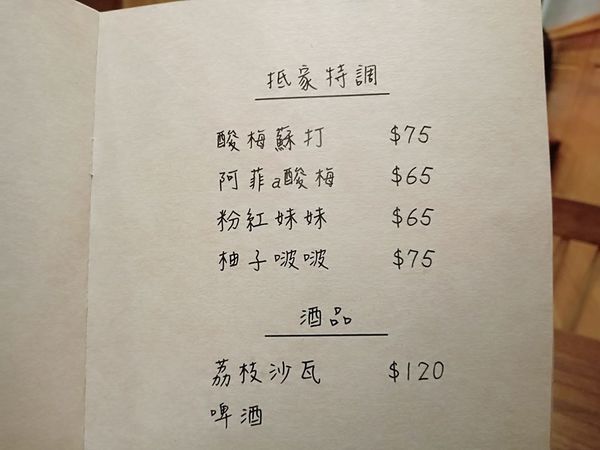 抵家特調
酸梅蘇打 $75
阿菲a酸梅 $65
粉紅妹妹 $65
柚子啵啵 $75
酒品
荔枝沙瓦 $120
啤酒